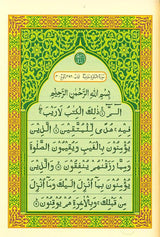 بِسْمِ اللهِ الرَّحْمٰنِ الرَّحِيْمِ
الٓمّٓ ذٰلِكَ الْكِتٰبُ لَا رَيْبَ
فِيْهِ هُدًى لِّلْمُتَّقِيْنَ الَّذِيْنَ
يُؤْمِنُوْنَ بِالْغَيْبِ وَيُقِيْمُوْنَ الصَّلٰوةَ
وَمِمَّا رَزَقْنٰهُمْ يُنْفِقُوْنَ وَالَّذِيْنَ
يُؤْمِنُوْنَ بِمَآ اُنْزِلَ اِلَيْكَ وَمَآ اُنْزِلَ
مِنْ قَبْلِكَ وَبِالْاٰخِرَةِ هُمْ يُوْقِنُوْنَ